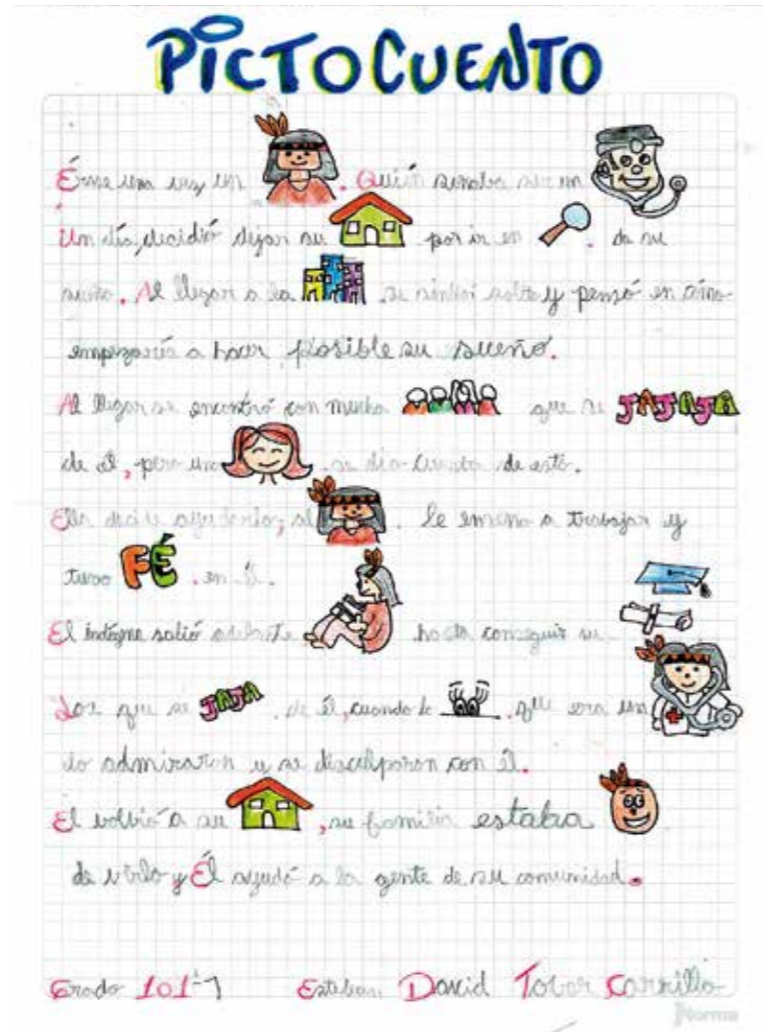 PICTOCUENTO
Érase una vez un . Quién soñaba ser un
Un día, decidió dejar su por ir en . de su
sueño. Al llegar a la se sintió solo y pensó en cómo
empezaría a hacer posible su sueño.
Al llegar se encontró con mucha que se JAJAJA
de él, pero una se dio cuenta de esto.
Ella decide ayudarlo; al . le enseño a trabajar y
tuvo FÉ . en él.
El salió adelante hasta conseguir su
Los que se JAJA . de él, cuando lo . que era un
lo admiraron y se disculparon con él.
El volvió a su , su familia estaba
de verlo y Él ayudó a la gente de su comunidad.
Grado 101-1 Esteban David Tobar Carrillo
Norma